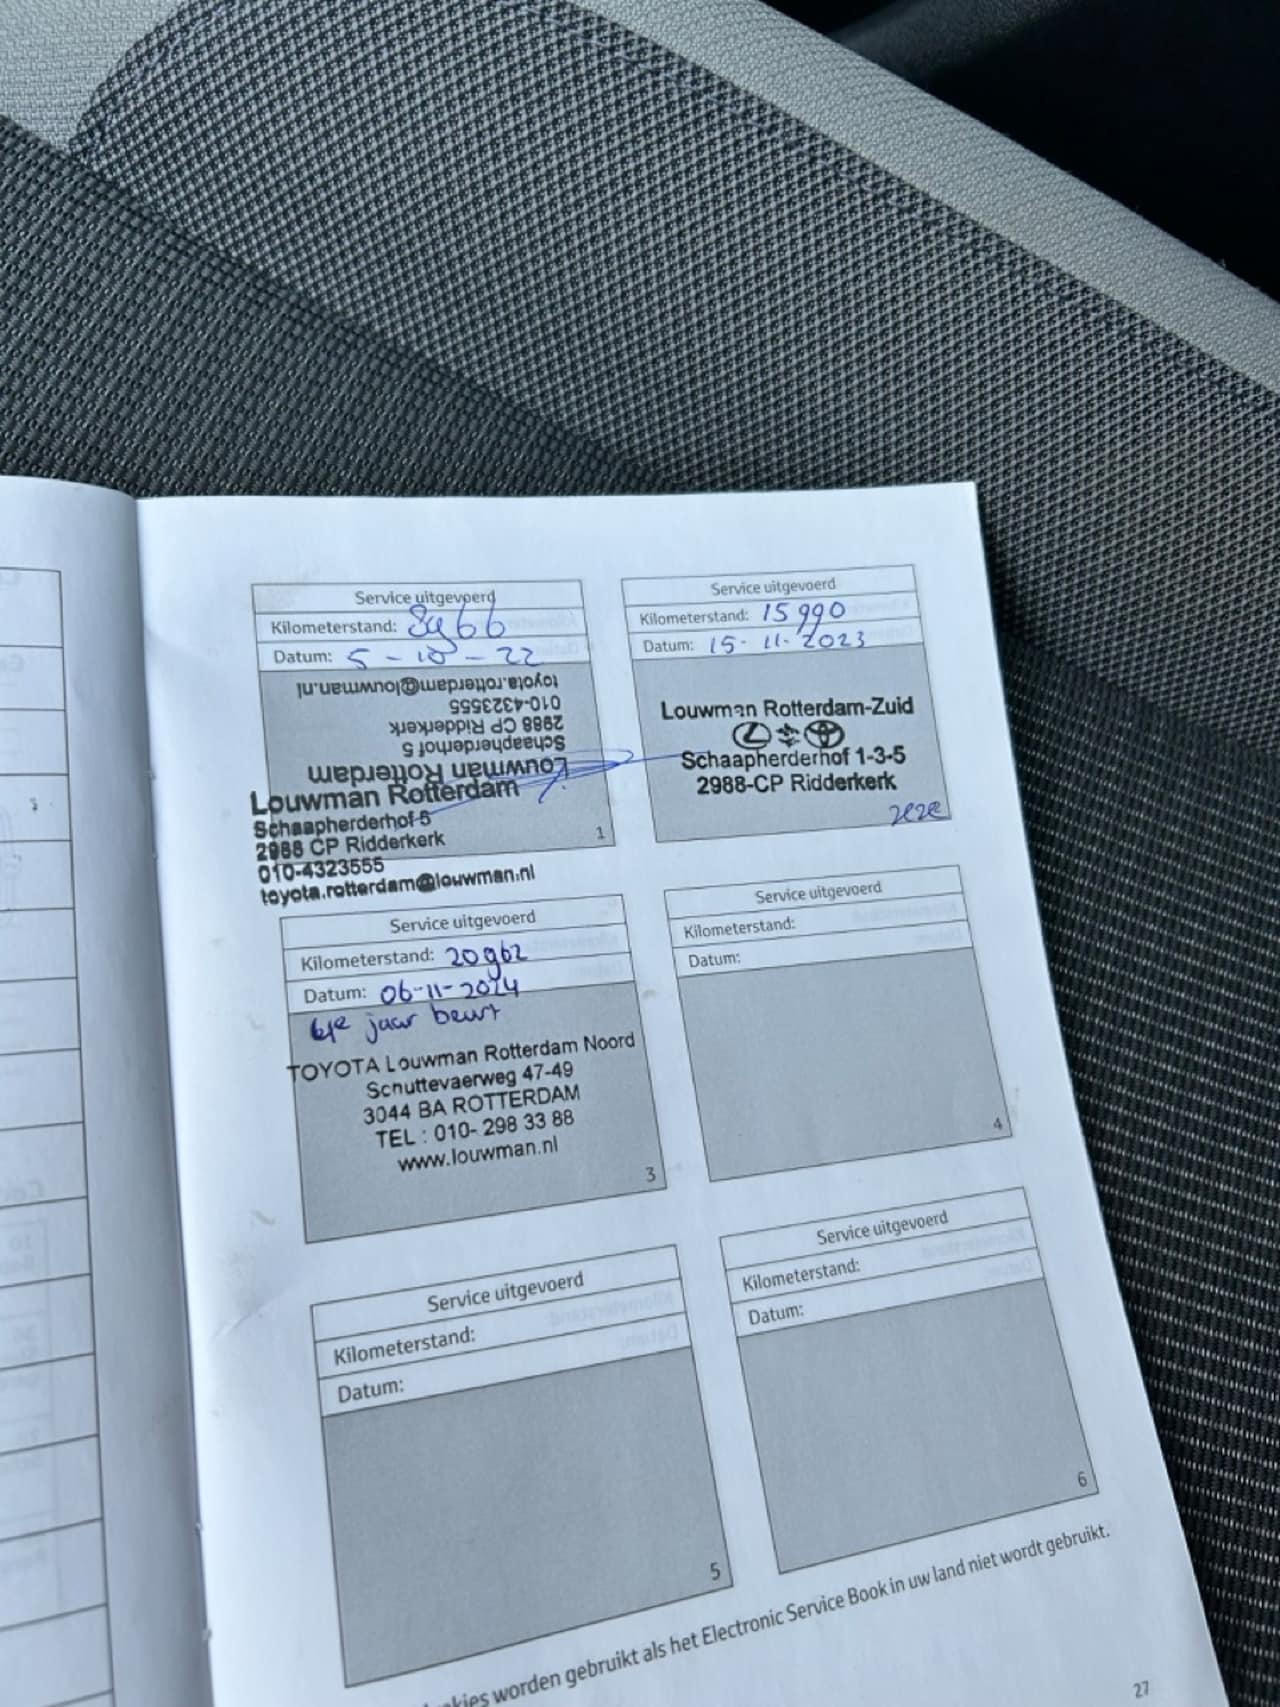 Service uitgevoerd
Kilometerstand: 8966
Datum: 5-10-22
toyota.rotterdam@louwman.nl
010-4323555
2988 CP Ridderkerk
Schaapherderhof 5
Louwman Rotterdam
Louwman Rotterdam
Schaapherderhof 5
2988 CP Ridderkerk
010-4323555
toyota.rotterdam@louwman.nl
1
Service uitgevoerd
Kilometerstand: 15990
Datum: 15-11-2023
Louwman Rotterdam-Zuid
Schaapherderhof 1-3-5
2988-CP Ridderkerk
Service uitgevoerd
Kilometerstand: 20962
Datum: 06-11-2024
jaar beurt
TOYOTA Louwman Rotterdam Noord
Schuttevaerweg 47-49
3044 BA ROTTERDAM
TEL : 010- 298 33 88
www.louwman.nl
3
Service uitgevoerd
Kilometerstand:
Datum:
4
Service uitgevoerd
Kilometerstand:
Datum:
5
Service uitgevoerd
Kilometerstand:
Datum:
6
worden gebruikt als het Electronic Service Book in uw land niet wordt gebruikt.
27